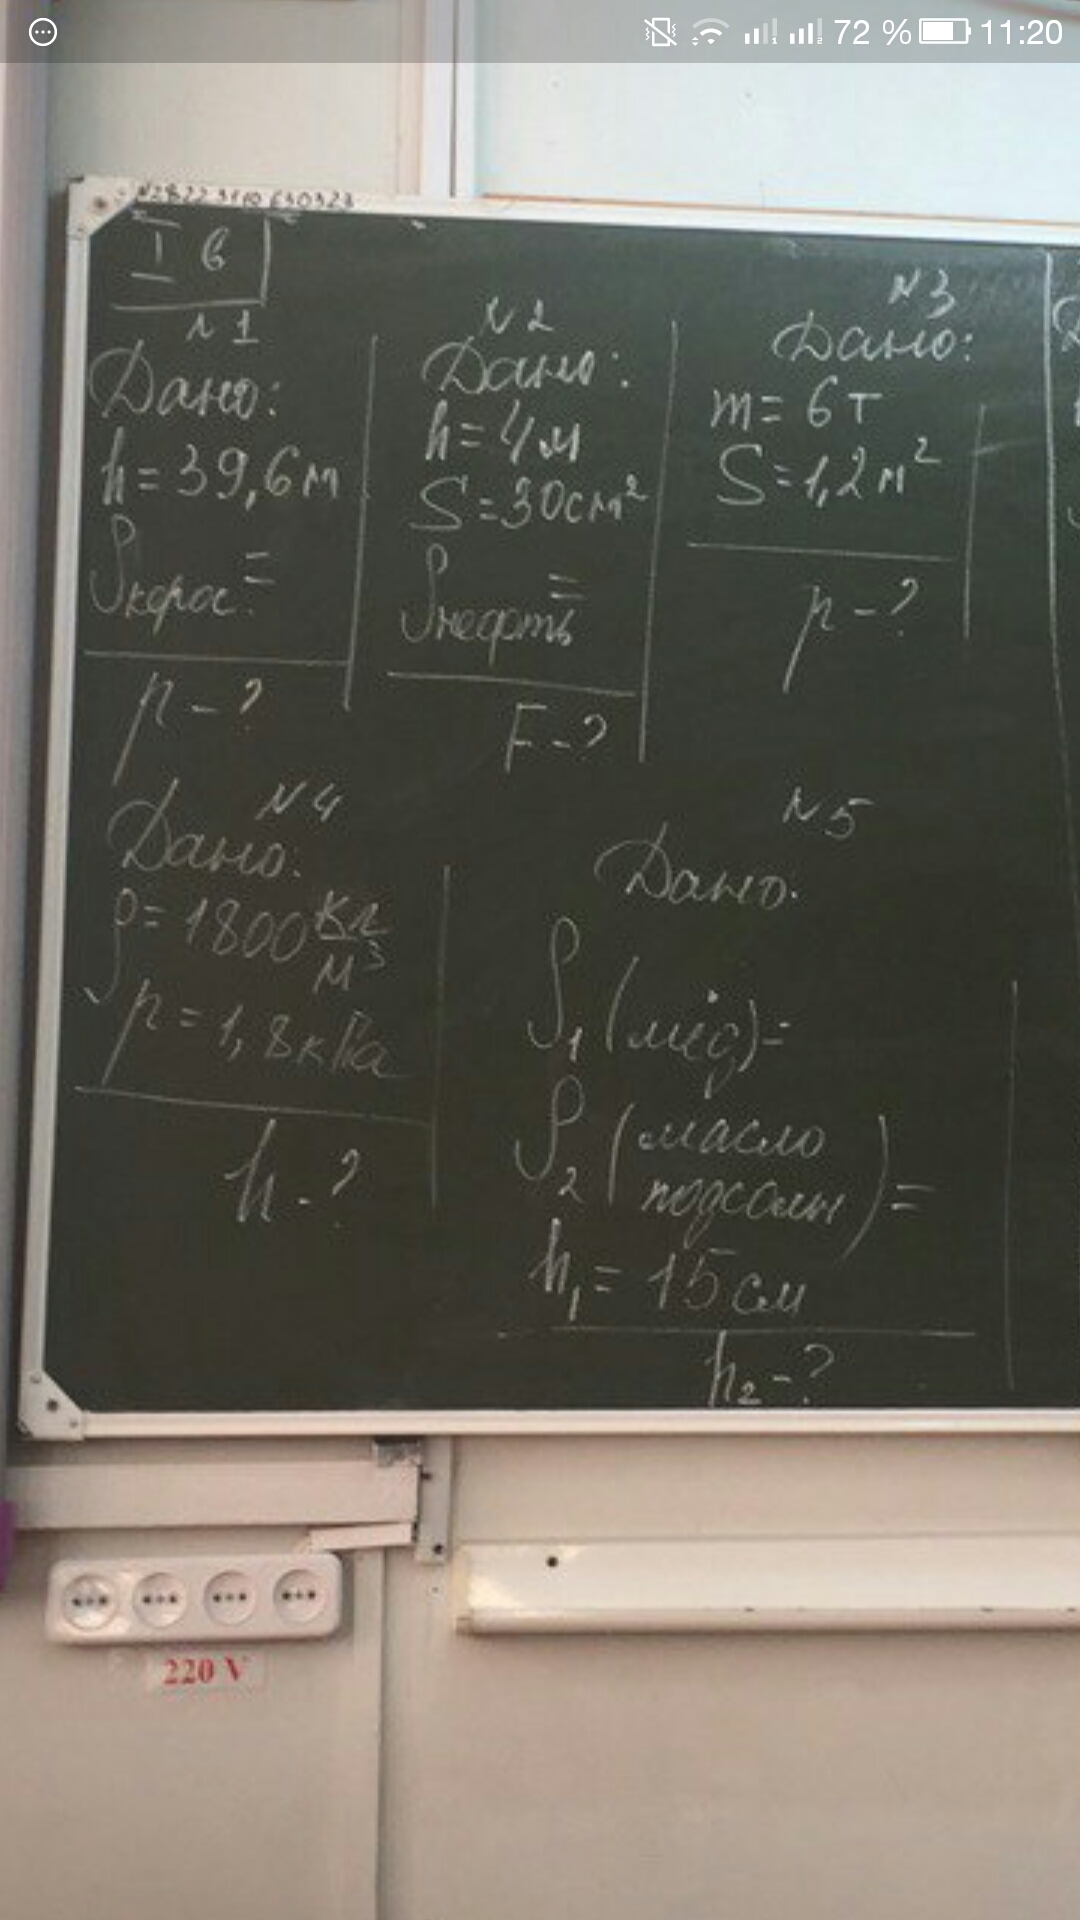 72 % 11:20
I в
N1
Дано:
h=39,6м
ρкерос.=
p-?
N2
Дано:
h=4м
S=30см²
ρнефть=
F-?
N3
Дано:
m=6т
S=1,2м²
p-?
N4
Дано:
ρ=1800 кг/м³
p=1,8кПа
h-?
N5
Дано:
ρ₁(мёд)=
ρ₂(масло
подсолн)=
h₁=15см
h₂-?
220 V